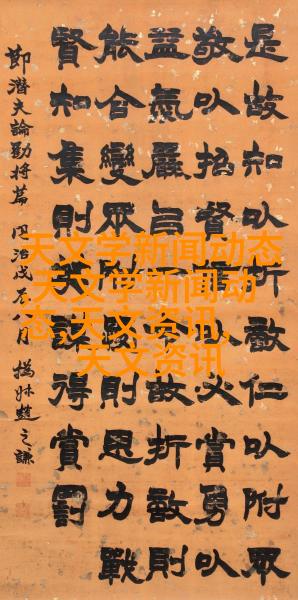 是故知以折敵仁以附眾
敬以招賢信以必賞勇以
益氣嚴以一令故折敵則
能合變眾附則思力戰
賢知集則英謀得賞罰
節潛夫論勸將篇 同治戊辰八月 撝叔趙之謙
天文学新闻动态
天文学新闻动
态,天文资讯,
天文资讯